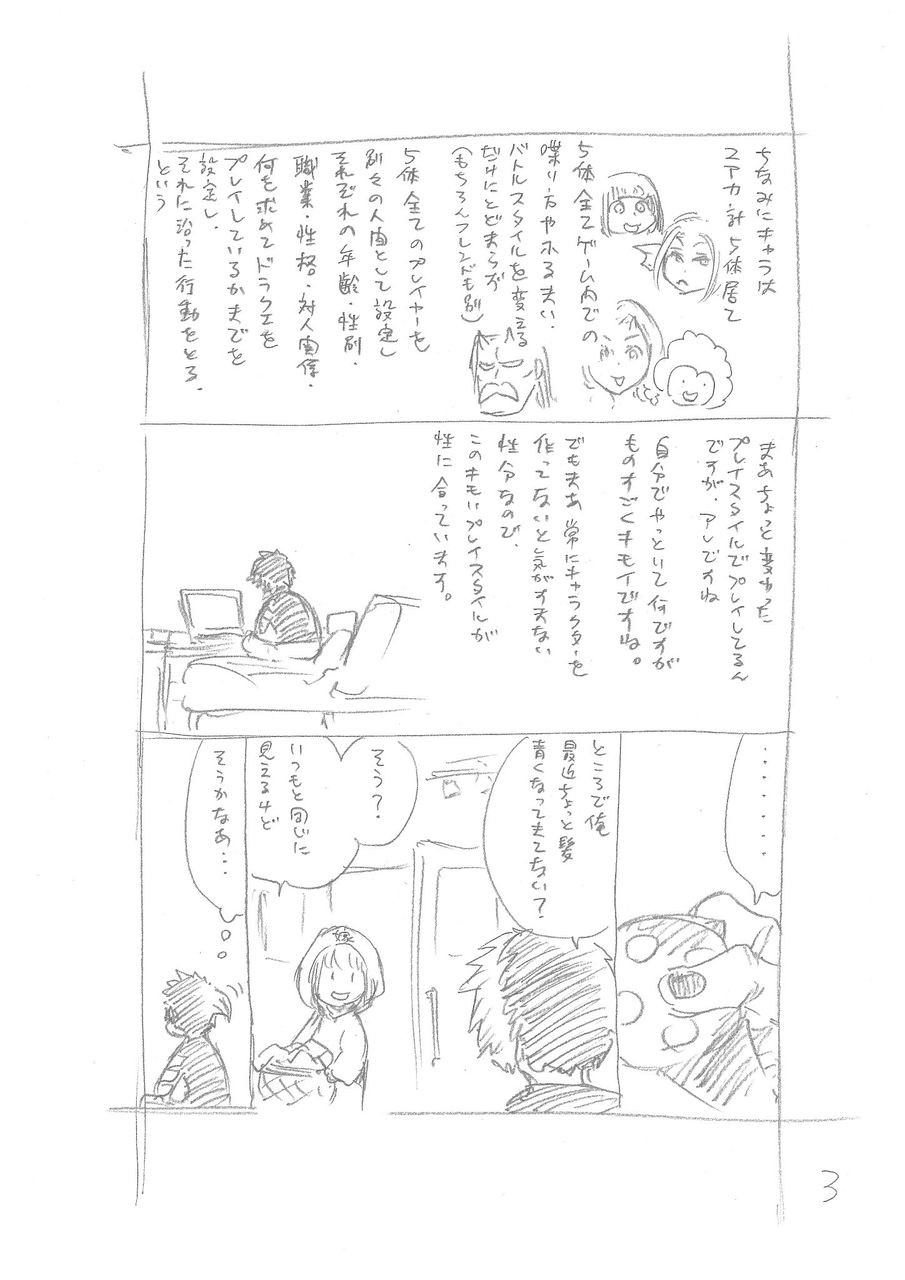 ちなみにキャラは
2アカ・計5体居て
5体全てゲーム内での
喋り方やふるまい・
バトルスタイルを変える
だけにとどまらず
(もちろんフレンドも別)
5体全てのプレイヤーを
別々の人間として設定し
それぞれの年齢・性別・
職業・性格・対人関係・
何を求めてドラクエを
プレイしているかまでを
設定し
それに沿った行動をとる、
という
まあちょっと変わった
プレイスタイルでプレイしてるん
ですが、アレですね
自分でやっといて何ですが
ものすごくキモイですね。
でもまあ常にキャラクターを
作ってないと気がすまない
性分なので、
このキモいプレイスタイルが
性に合っています。
・・・・・・・
ところで俺
最近ちょっと髪
青くなってきてない?
そう?
いつもと同じに
見えるけど
そうかなあ・・・
3